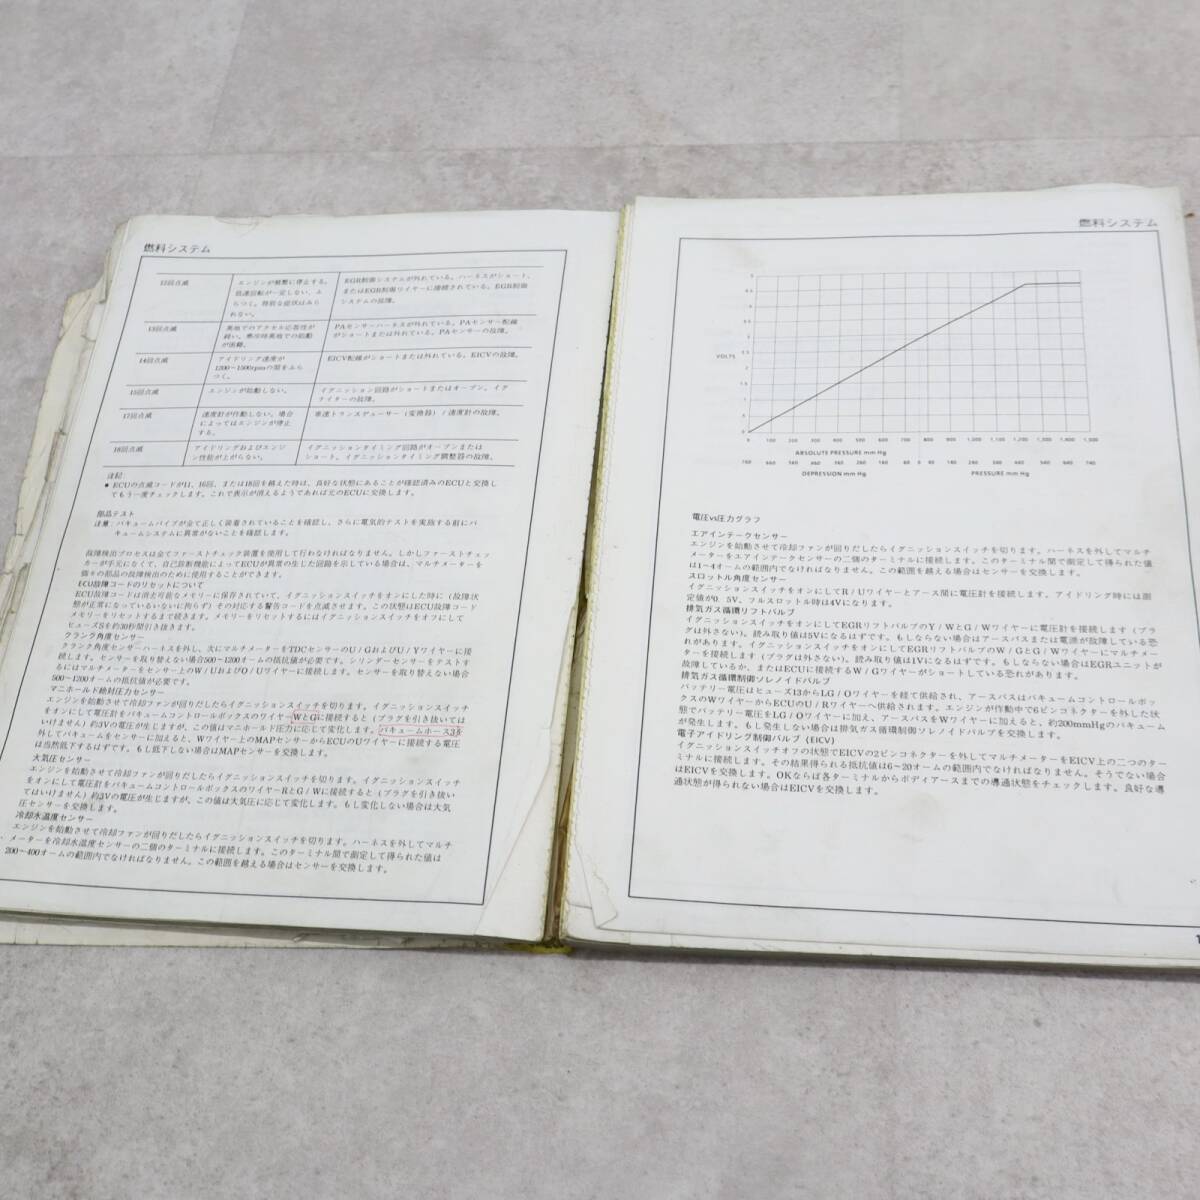 燃料システム
12回点滅
エンジンが頻繁に停止する。
低速回転が一定しない、ふ
らつく。特別な症状はみら
れない。
EGR制御システムが外れている。ハーネスがショート、
またはEGR制御ワイヤーに接続されている。EGR制御
システムの故障。
13回点滅
高地でのアクセル応答性が
鈍い。寒冷時高地での始動
が困難。
PAセンサーハーネスが外れている。PAセンサー配線
がショートまたは外れている。PAセンサーの故障。
14回点滅
アイドリング速度が
1200~1500rpmの間をふら
つく。
EICV配線がショートまたは外れている。EICVの故障。
15回点滅
エンジンが始動しない。
イグニッション回路がショートまたはオープン。イグ
ナイターの故障。
17回点滅
速度計が作動しない。場合
によってはエンジンが停止
する。
車速トランスデューサー(変換器)/速度計の故障。
18回点滅
アイドリングおよびエンジ
ン性能が上がらない。
イグニッションタイミング回路がオープンまたは
ショート。イグニッションタイミング調整器の故障。
注記:
■ ECUの点滅コードが11、16回、または18回を越えた時は、良好な状態にあることが確認済みのECUと交換し
てもう一度チェックします。これで表示が消えるようであれば元のECUに交換します。
部品テスト
注意:バキュームパイプが全て正しく装着されていることを確認し、さらに電気的テストを実施する前にバ
キュームシステムに異常がないことを確認します。
故障検出プロセスは全てファーストチェック装置を使用して行わなければなりません。しかしファーストチェッ
カーが手元になくて、自己診断機能によってECUが異常の生じた回路を示している場合は、マルチメーターを
個々の部品の故障検出のために使用することができます。
ECU故障コードのリセットについて
ECU故障コードは消去可能なメモリーに保存されていて、イグニッションスイッチをオンにした時に(故障状
態が正常になっているいないに拘らず)その対応する警告コードを点滅させます。この状態はECU故障コード
メモリーをリセットするまで続きます。メモリーをリセットするにはイグニッションスイッチをオフにして
ヒューズSを約30秒間引き抜きます。
クランク角度センサー
クランク角度センサーハーネスを外し、次にマルチメーターをTDCセンサーのU/GおよびU/Yワイヤーに接
続します。センサーを取り替えない場合500~1200オームの抵抗値が必要です。シリンダーセンサーをテストす
るにはマルチメーターをセンサー上のW/UおよびO/Uワイヤーに接続します。センサーを取り替えない場合
500~1200オームの抵抗値が必要です。
マニホールド絶対圧力センサー
エンジンを始動させて冷却ファンが回りだしたらイグニッションスイッチを切ります。イグニッションスイッチ
をオンにして電圧計をバキュームコントロールボックスのワイヤーWとGに接続すると(プラグを引き抜いては
いけません)約3Vの電圧が生じますが、この値はマニホールド圧力に応じて変化します。バキュームホース3を
外してバキュームをセンサーに加えると、Wワイヤー上のMAPセンサーからECUのUワイヤーに接続する電圧
は当然低下するはずです。もし低下しない場合はMAPセンサーを交換します。
大気圧センサー
エンジンを始動させて冷却ファンが回りだしたらイグニッションスイッチを切ります。イグニッションスイッチ
をオンにして電圧計をバキュームコントロールボックスのワイヤーRとG/Wに接続すると(プラグを引き抜い
てはいけません)約3Vの電圧が生じますが、この値は大気圧に応じて変化します。もし変化しない場合は大気
圧センサーを交換します。
冷却水温度センサー
エンジンを始動させて冷却ファンが回りだしたらイグニッションスイッチを切ります。ハーネスを外してマルチ
メーターを冷却水温度センサーの二個のターミナルに接続します。このターミナル間で測定して得られた値は
200~400オームの範囲内でなければなりません。この範囲を越える場合はセンサーを交換します。
燃料システム
VOLTS
0 100 200 300 400 500 600 700 800 900 1,000 1,100 1,200 1,300 1,400 1,500
ABSOLUTE PRESSURE mm Hg
DEPRESSION mm Hg
PRESSURE mm Hg
電圧vs圧力グラフ
エアインテークセンサー
エンジンを始動させて冷却ファンが回りだしたらイグニッションスイッチを切ります。ハーネスを外してマルチ
メーターをエアインテークセンサーの二個のターミナルに接続します。このターミナル間で測定して得られた値
は1~4オームの範囲内でなければなりません。この範囲を越える場合はセンサーを交換します。
スロットル角度センサー
イグニッションスイッチをオンにしてR/Uワイヤーとアース間に電圧計を接続します。アイドリング時には測
定値が0.5V、フルスロットル時は4Vになります。
排気ガス循環リフトバルブ
イグニッションスイッチをオンにしてEGRリフトバルブのY/WとG/Wワイヤーに電圧計を接続します(プラ
グは外さない)。読み取り値は5Vになるはずです。もしならない場合はアースパスまたは電源が故障している恐
れがあります。イグニッションスイッチをオンにしてEGRリフトバルブのW/GとG/Wワイヤーにマルチメー
ターを接続します(プラグは外さない)。読み取り値は1Vになるはずです。もしならない場合はEGRユニットが
故障しているか、またはECUに接続するW/Gワイヤーがショートしている恐れがあります。
排気ガス循環制御ソレノイドバルブ
バッテリー電圧はヒューズ13からLG/Oワイヤーを経て供給され、アースパスはバキュームコントロールボッ
クスのWワイヤーからECUのU/Rワイヤーへ供給されます。エンジンが作動中で6ピンコネクターを外した状
態でバッテリー電圧をLG/Oワイヤーに加え、アースパスをWワイヤーに加えると、約200mmHgのバキューム
が発生します。もし発生しない場合は排気ガス循環制御ソレノイドバルブを交換します。
電子アイドリング制御バルブ(EICV)
イグニッションスイッチオフの状態でEICVの2ピンコネクターを外してマルチメーターをEICV上の二つのター
ミナルに接続します。その結果得られる抵抗値は6~20オームの範囲内でなければなりません。そうでない場合
はEICVを交換します。OKならば各ターミナルからボディアースまでの導通状態をチェックします。良好な導
通状態が得られない場合はEICVを交換します。